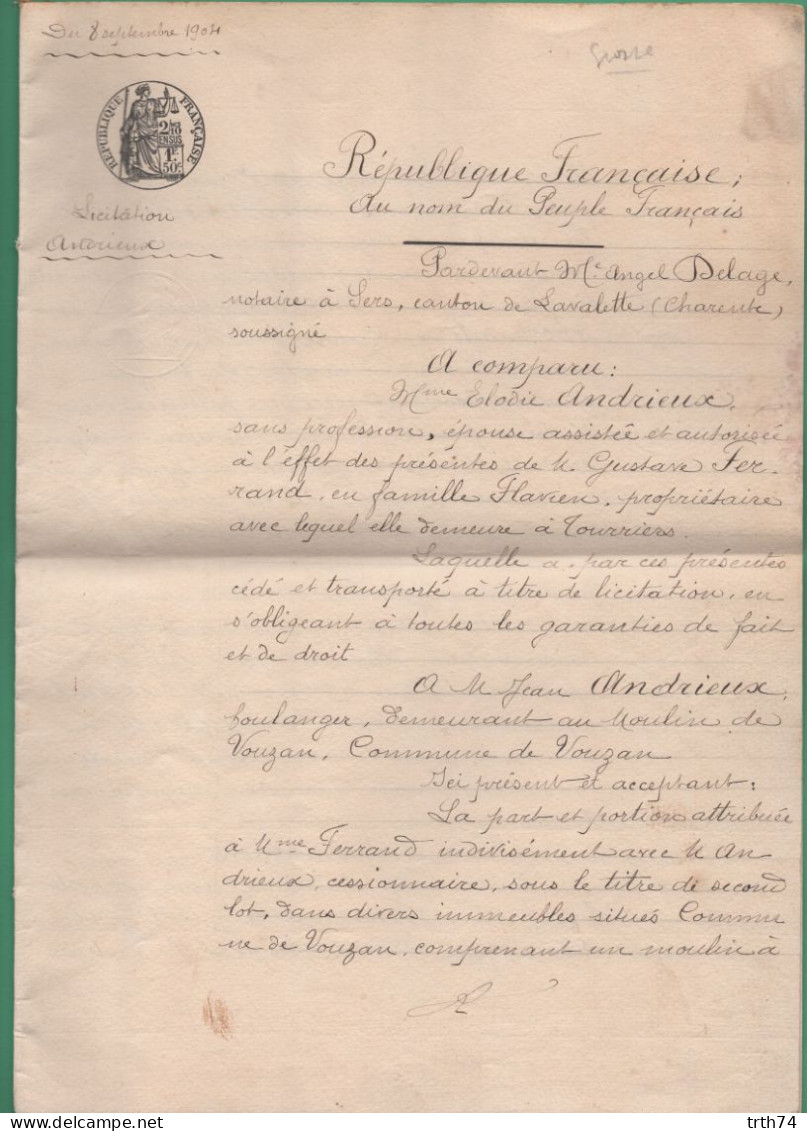 Du 8 septembre 1904
Grosse
RÉPUBLIQUE FRANÇAISE
2/10
EN SUS
1F
50c
Licitation
Andrieux
République Française,
Au nom du Peuple Français
Pardevant Me Angel Delage,
notaire à Sers, canton de Lavalette (Charente)
soussigné
A comparu:
Mme Elodie Andrieux,
sans profession, épouse assistée et autorisée
à l'effet des présentes de M. Gustave Fer-
rand, en famille Flavien, propriétaire
avec lequel elle demeure à Tourriers.
Laquelle a, par ces présentes
cédé et transporté à titre de licitation, en
s'obligeant à toutes les garanties de fait
et de droit
A M Jean Andrieux,
boulanger, demeurant au Moulin de
Vouzan, Commune de Vouzan
Ici présent et acceptant:
La part et portion attribuée
à Mme Ferrand indivisément avec M An
drieux, cessionnaire, sous le titre de second
lot, dans divers immeubles situés Commu
ne de Vouzan, comprenant un moulin à
www.delcampe.net
trth74